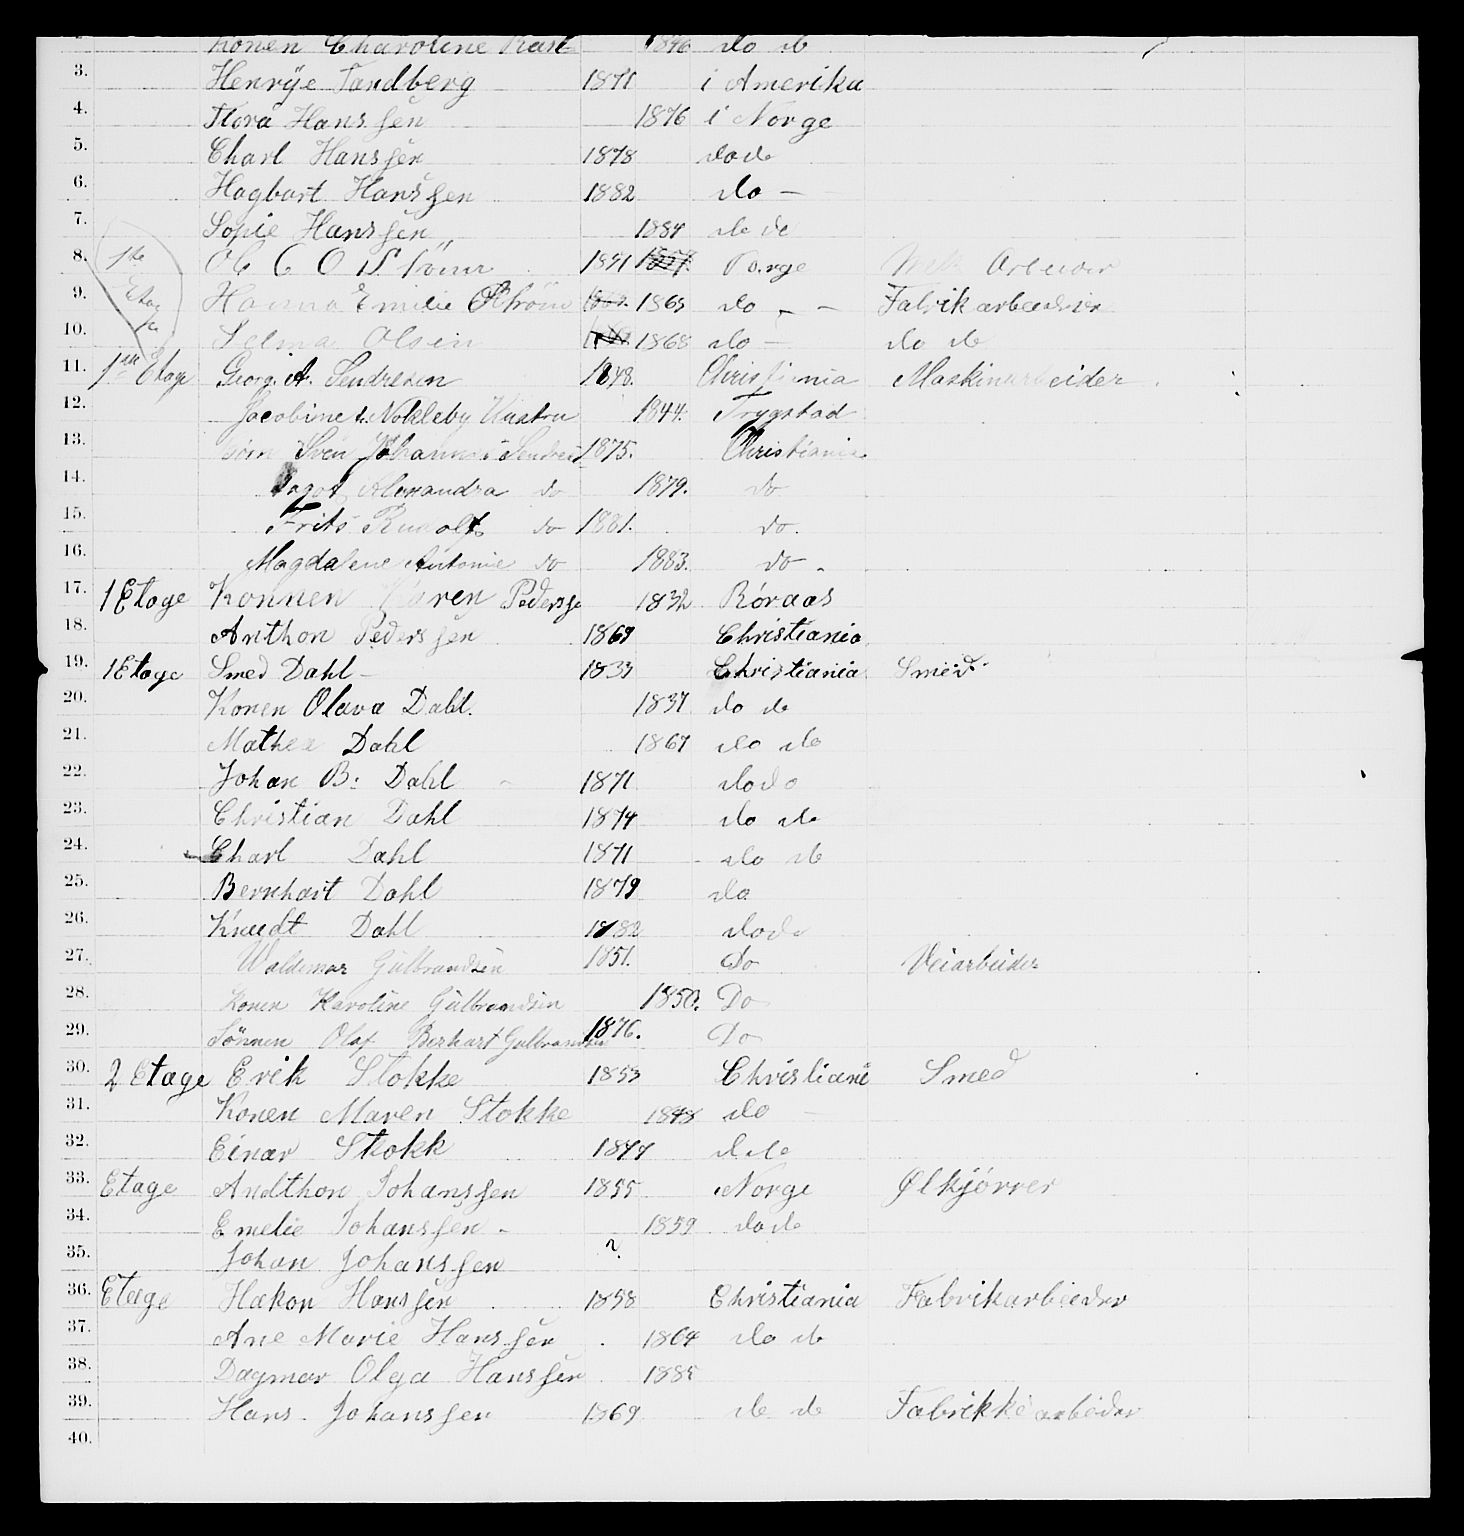 Konen Charoline 1846 do do
3. Henrye Tandberg 1871 i Amerika
4. Flora Hanssen 1876 i Norge
5. Charl Hanssen 1878 do do
6. Hagbart Hanssen 1882 do —
7. Sofie Hanssen 1884 do do
8. 1ste 1841 Norge Mek Arbeider
9. Etag Hanna Emilie Ström 1865 do — Fabrikarbeider
10. Selma Olsen 1868 do — do do
11. 1ste Etage Georg A. Sendresen 1848. Christiania Maskinarbeider
12. Jacobine Nokleby Hustru 1844. Trygstad
13. Sven Johannes 1875. Christiania
14. Alexandra do 1879. do
15. Frits Rudolf do 1881. do.
16. Magdalene Antonie do 1883. do
17. 1 Etage Konnen Karen Pederss 1832 Röraas
18. Anthon Pederssen 1869 Christiania
19. 1 Etage Smed Dahl — 1833 Christiania Smed
20. Konen Olava Dahl. 1837 do do
21. Mathea Dahl 1867 do do
22. Johan B: Dahl 1871 do do
23. Christian Dahl 1874 do do
24. Charl Dahl 1871 do do
25. Bernhart Dahl 1879 do
26. Knudt Dahl 1882 do do
27. Waldemar Gulbrandsen 1851. Do Veiarbeider
28. Konen Karoline Gulbrandsen 1850. Do
29. Sönnen Olaf Berhart Gulbrandsen 1876. Do
30. 2 Etage Erik Stokke 1853 Christiani Smed
31. Konen Maren Stokke 1848 do —
32. Einar Stokk 1877 do do
33. Etage Andthon Johanssen 1855 Norge Ølkjörrer
34. Emelie Johanssen — 1859 do do
35. Johan Johanssen ?
36. Etage Hakon Hanssen 1858 Christiania Fabrikarbieder
37. Ane Marie Hanssen 1864 do do
38. Dagmar Olga Hanssen 1885
39. Hans. Johanssen 1869 do do Fabrikke arbeder
40.